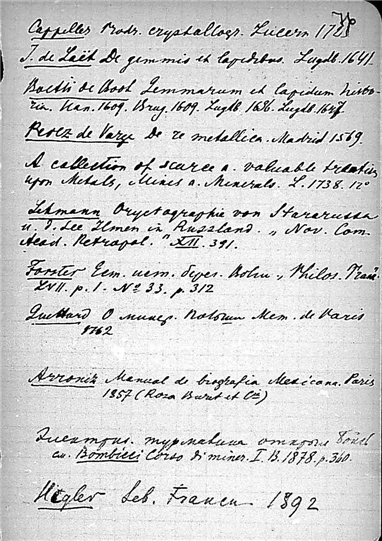 Cappeller Prodr. crystallogr. Lucern 1723
J. de Laët De gemmis et lapidibus. Lugdb. 1641.
Boetii de Boot Gemmarum et lapidum histo-
ria. Han. 1609. Brug. 1609. Lugdb. 1636. Lugdb. 1647.
Perez de Varga De re metallica. Madrid 1569.
A collection of scarce a. valuable treatises,
upon Metals, Mines a. Minerals. L. 1738. 12°
Lehmann Oryctographie von Stararussa
u. d. See Ilmen in Russland. „Nov. Com.
Acad. Petropol." XII. 391.
Forster Ест. ист. Волги „Philos. Trans.
LVII. p. 1. № 33. p. 312
Guettard О минер. Mem. de Paris
1762
Arroniz Manual de biografia Mexicana. Paris
1857 (Rosa Buret et Cie)
Электрич. турмалина
см. Bombicci Corso di miner. I. B. 1878. p. 360.
Hegler Seb. Franck 1892